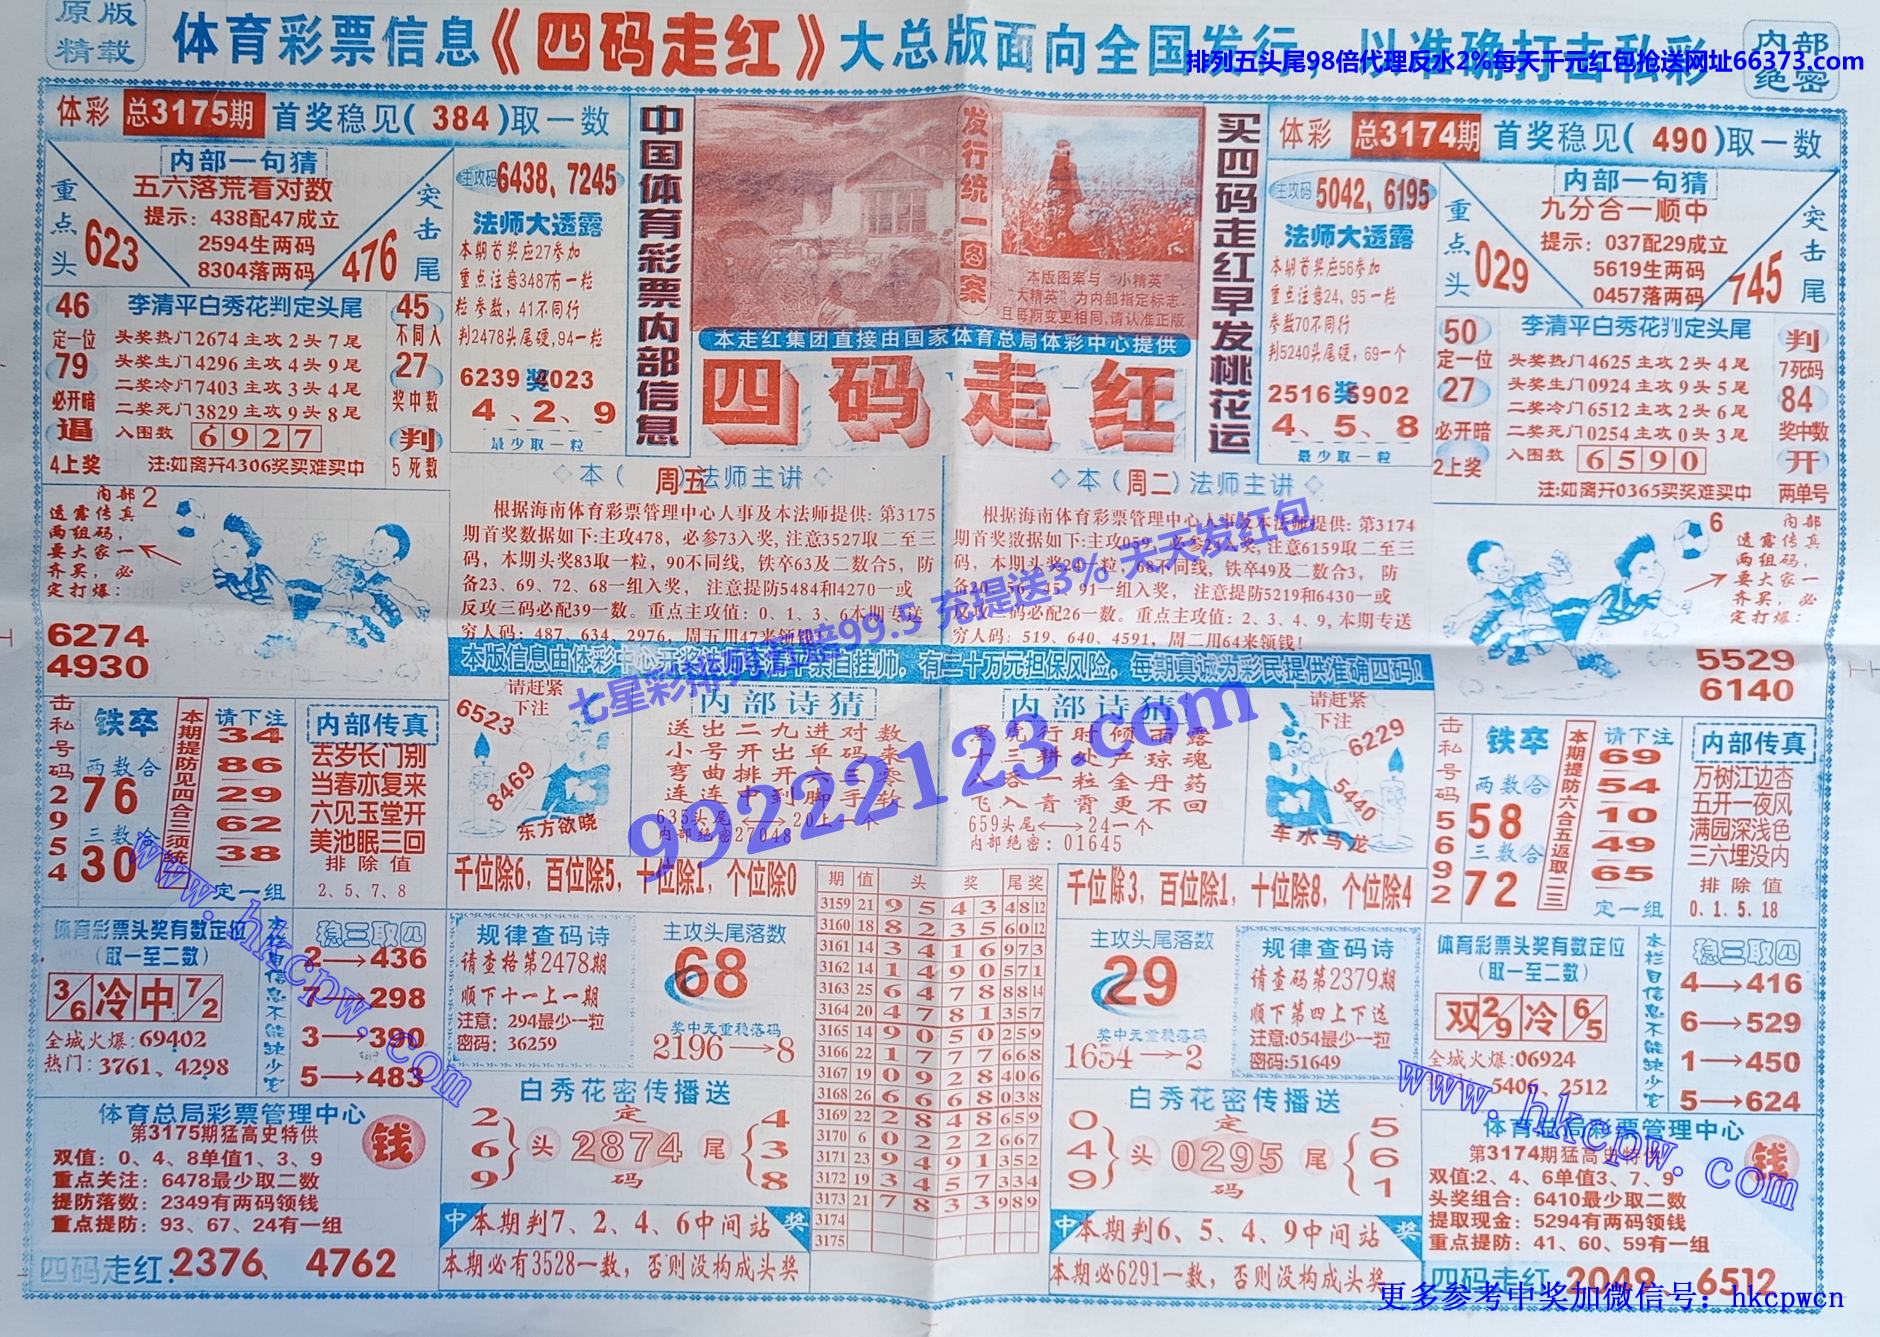 原版
精载
体育彩票信息《四码走红》大总版面向全国发行，以准确打击私彩
内部
绝密
排列五头尾98倍代理反水2%每天千元红包抢送网址66373.com
体彩 总3175期 首奖稳见(384)取一数
内部一句猜
五六落荒看对数
提示：438配47成立
2594生两码
8304落两码
重点头
623
突击尾
476
主攻码6438、7245
法师大透露
本期首奖应27参加
重点注意3487有一粒
粒参数，41不同行
判2478头尾硬,94一粒
6239奖4023
4、2、9
最少取一粒
46
定一位
79
必开暗
逼
4上奖
李清平白秀花判定头尾
头奖热门2674主攻2头7尾
头奖生门4296主攻4头9尾
二奖冷门7403主攻3头4尾
二奖死门3829主攻9头8尾
入围数 6927
注:如离开4306奖买难买中
45
不同入
27
奖中数
判
5死数
中国体育彩票内部信息
发行统一图案
本版图案与“小精英”
“大精英”为内部指定标志
且每期变更相同,请认准正版
本走红集团直接由国家体育总局体彩中心提供
四码走红
买四码走红早发桃花运
体彩 总3174期 首奖稳见(490)取一数
主攻码5042、6195
法师大透露
本期首奖应56参加
重点注意24、95一粒
参数70不同行
判5240头尾硬，69一个
2516奖5902
4、5、8
最少取一粒
内部一句猜
九分合一顺中
提示：037配29成立
5619生两码
0457落两码
重点头
029
突击尾
745
50
定一位
27
必开暗
2上奖
李清平白秀花判定头尾
头奖热门4625主攻2头4尾
头奖生门0924主攻9头5尾
二奖冷门6512主攻2头6尾
二奖死门0254主攻0头3尾
入围数 6590
注:如离开0365买奖难买中
判
7死码
84
奖中数
开
两单号
内部2
透露传真
两组码，
要大家一
齐买，必
定打爆：
6274
4930
◇本（周五）法师主讲◇
根据海南体育彩票管理中心人事及本法师提供：第3175
期首奖数据如下:主攻478，必参73入奖, 注意3527取二至三
码，本期头奖83取一粒，90不同线, 铁卒63及二数合5，防
备23、69、72、68一组入奖， 注意提防5484和4270一或
反攻三码必配39一数。重点主攻值：0、1、3、6本期专送
穷人码：487、634、2976，周五用47来领钱
◇本（周二）法师主讲◇
根据海南体育彩票管理中心人事及本法师提供: 第3174
期首奖数据如下:主攻059，必参24入奖, 注意6159取二至三
码，本期头奖24一粒，68不同线, 铁卒49及二数合3， 防
备20、56、45、91一组入奖， 注意提防5219和6430一或
反攻三码必配26一数。重点主攻值：2、3、4、9, 本期专送
穷人码：519、640、4591，周二用64来领钱！
6
内部
透露传真
两组码，
要大家一
齐买，必
定打爆：
5529
6140
七星彩排列五赔99.5 充提送3% 天天发红包
99222123.com
有二十万元担保风险，每期真诚为彩民提供准确四码！
击私号码2954
铁卒
两数合
76
三数合
30
本期提防见四合三须统一
请下注
34
86
29
62
38
定一组
内部传真
去岁长门别
当春亦复来
六见玉堂开
美池眠三回
排除值
2、5、7、8
请赶紧
下注
6523
8469
东方欲晓
内部诗猜
送出二九进对数
小号开出单码来
弯曲排开六三零
连连中到脚手软
635头尾←→20上一个
内部绝密27048
内部诗猜
黑虎行时倾雨露
飞入青霄更不回
659头尾←→24一个
内部绝密：01645
请赶紧
下注
6229
5440
车水马龙
击私号码5692
铁卒
两数合
58
三数合
72
本期提防六合五返取二三
请下注
69
54
10
49
65
定一组
内部传真
万树江边杏
五开一夜风
满园深浅色
三六埋没内
排除值
0、1、5、18
千位除6，百位除5，十位除1，个位除0
千位除3，百位除1，十位除8，个位除4
期 值 头奖 尾奖
3159 21 9 5 4 3 48 12
3160 18 8 2 3 5 60 12
3161 14 3 4 1 6 973
3162 14 1 4 9 0 571
3163 25 6 4 7 8 88 14
3164 20 4 7 8 1 357
3165 14 9 0 5 0 259
3166 22 1 7 7 7 668
3167 19 0 9 2 8 406
3168 26 6 6 6 8 038
3169 22 2 8 4 8 659
3170 6 0 2 2 2 667
3171 23 9 4 9 1 352
3172 19 3 4 5 7 334
3173 21 7 8 3 3 989
3174
3175
体育彩票头奖有数定位
（取一至二数）
3/6 冷 中 7/2
全城火爆：69402
热门：3761、4298
稳三取四
2→436
7→298
3→390
5→483
规律查码诗
请查格第2478期
顺下十一上一期
注意：294最少一粒
密码：36259
主攻头尾落数
68
奖中无重稳落码
2196→8
主攻头尾落数
29
奖中无重稳落码
1654→2
规律查码诗
请查码第2379期
顺下第四上下选
注意:054最少一粒
密码:51649
体育彩票头奖有数定位
（取一至二数）
双 2/9 冷 6/5
全城火爆:06924
5406、2512
本栏目信息不能缺少它
稳三取四
4→416
6→529
1→450
5→624
体育总局彩票管理中心
第3175期猛高史特供
钱
双值：0、4、8单值1、3、9
重点关注：6478最少取二数
提防落数：2349有两码领钱
重点提防：93、67、24有一组
四码走红:2376、4762
白秀花密传播送
2 6 9 头 定 2874 码 尾 4 3 8
中 本期判7、2、4、6中间站 奖
本期必有3528一数，否则没构成头奖
白秀花密传播送
0 4 9 头 定 0295 码 尾 5 6 1
中 本期判6、5、4、9中间站 奖
本期必6291一数，否则没构成头奖
体育总局彩票管理中心
第3174期猛高史特供
钱
双值:2、4、6单值3、7、9
头奖组合：6410最少取二数
提取现金：5294有两码领钱
重点提防：41、60、59有一组
四码走红 2049、6512
www.hkcpw.com
www.hkcpw.com
更多参考中奖加微信号：hkcpwcn